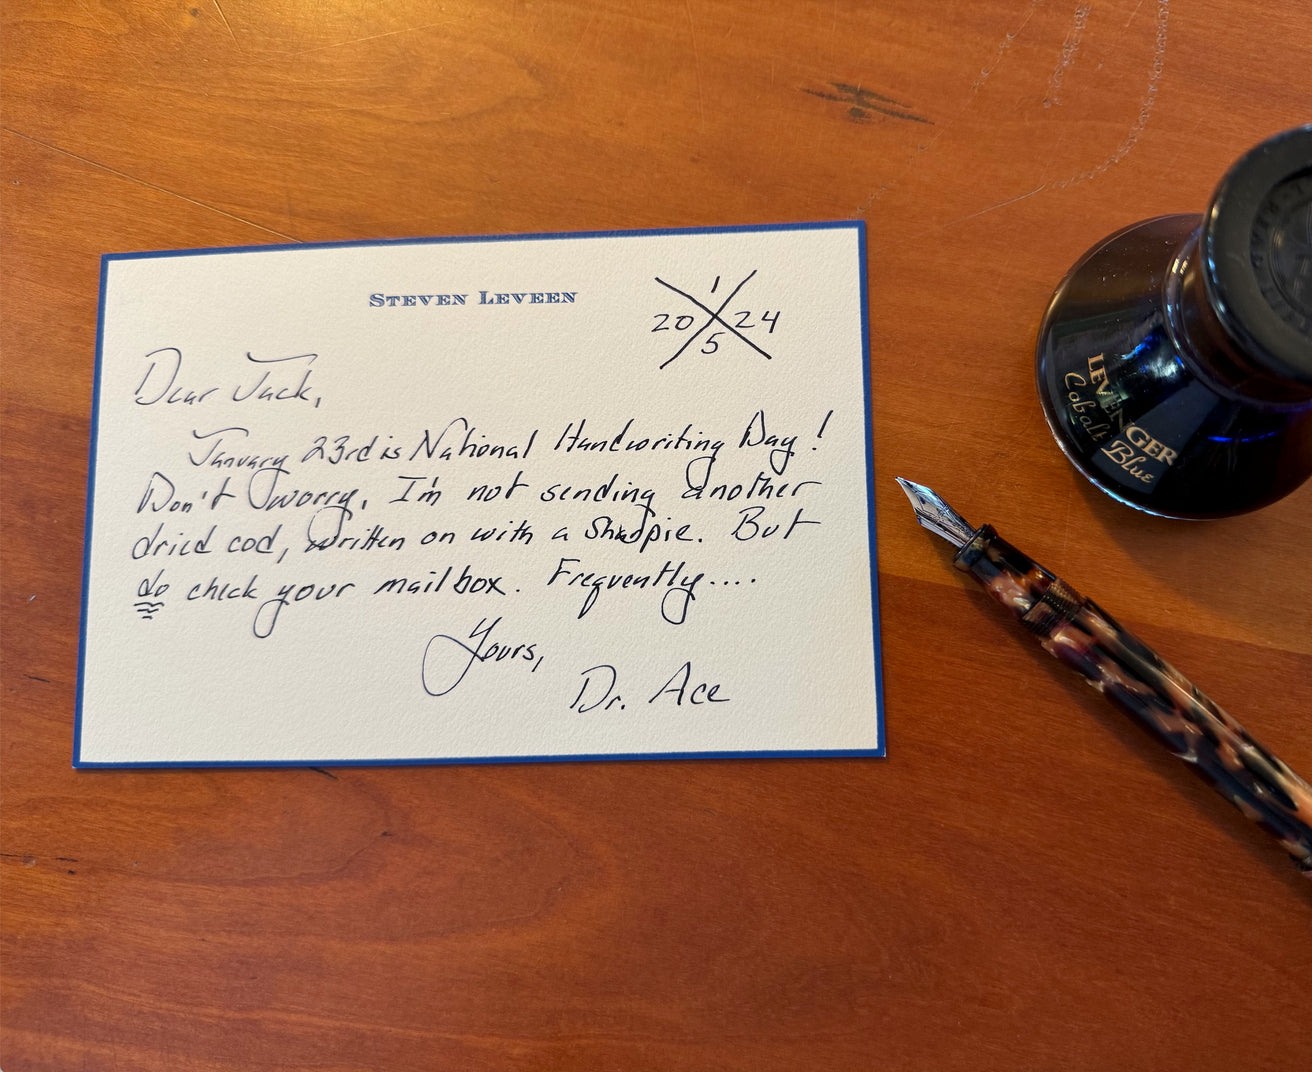 STEVEN LEVEEN
1
20 24
5
Dear Jack,
January 23rd is National Handwriting Day!
Don't worry, I'm not sending another
dried cod, written on with a Sharpie. But
do check your mailbox. Frequently....
Yours,
Dr. Ace
LEVENGER
Cobalt
Blue